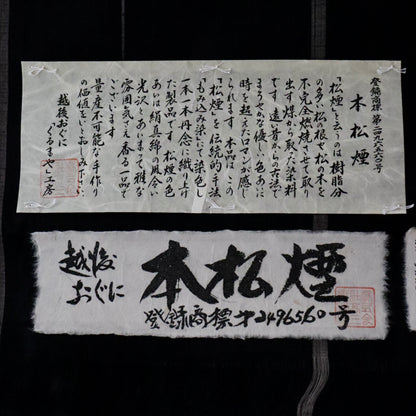 登録商標 第二四九六五六〇号
本松煙
「松煙」と云うのは 樹脂分
の多い松の根や松の木を
不完全燃焼させて取り
出す煤から取った染料
です。遠い昔からの古法で
まろやかな優しい色あいに
時を超えたロマンが感じ
られます。 本品はこの
「松煙」を伝統的手法
「もみ込み染」にて染色
一本一本丹念に織り上げ
た製品です。松煙の色
あいは絹真綿の風合い
光沢とあいまって雅な
雰囲気さえ香る一品で
ございます。
量産不可能な手作り
の価値をおたのしみ下さい。
越後おぐに
「ぐるまや」工房
越後
おぐに
本松煙
登録商標 才2496560号